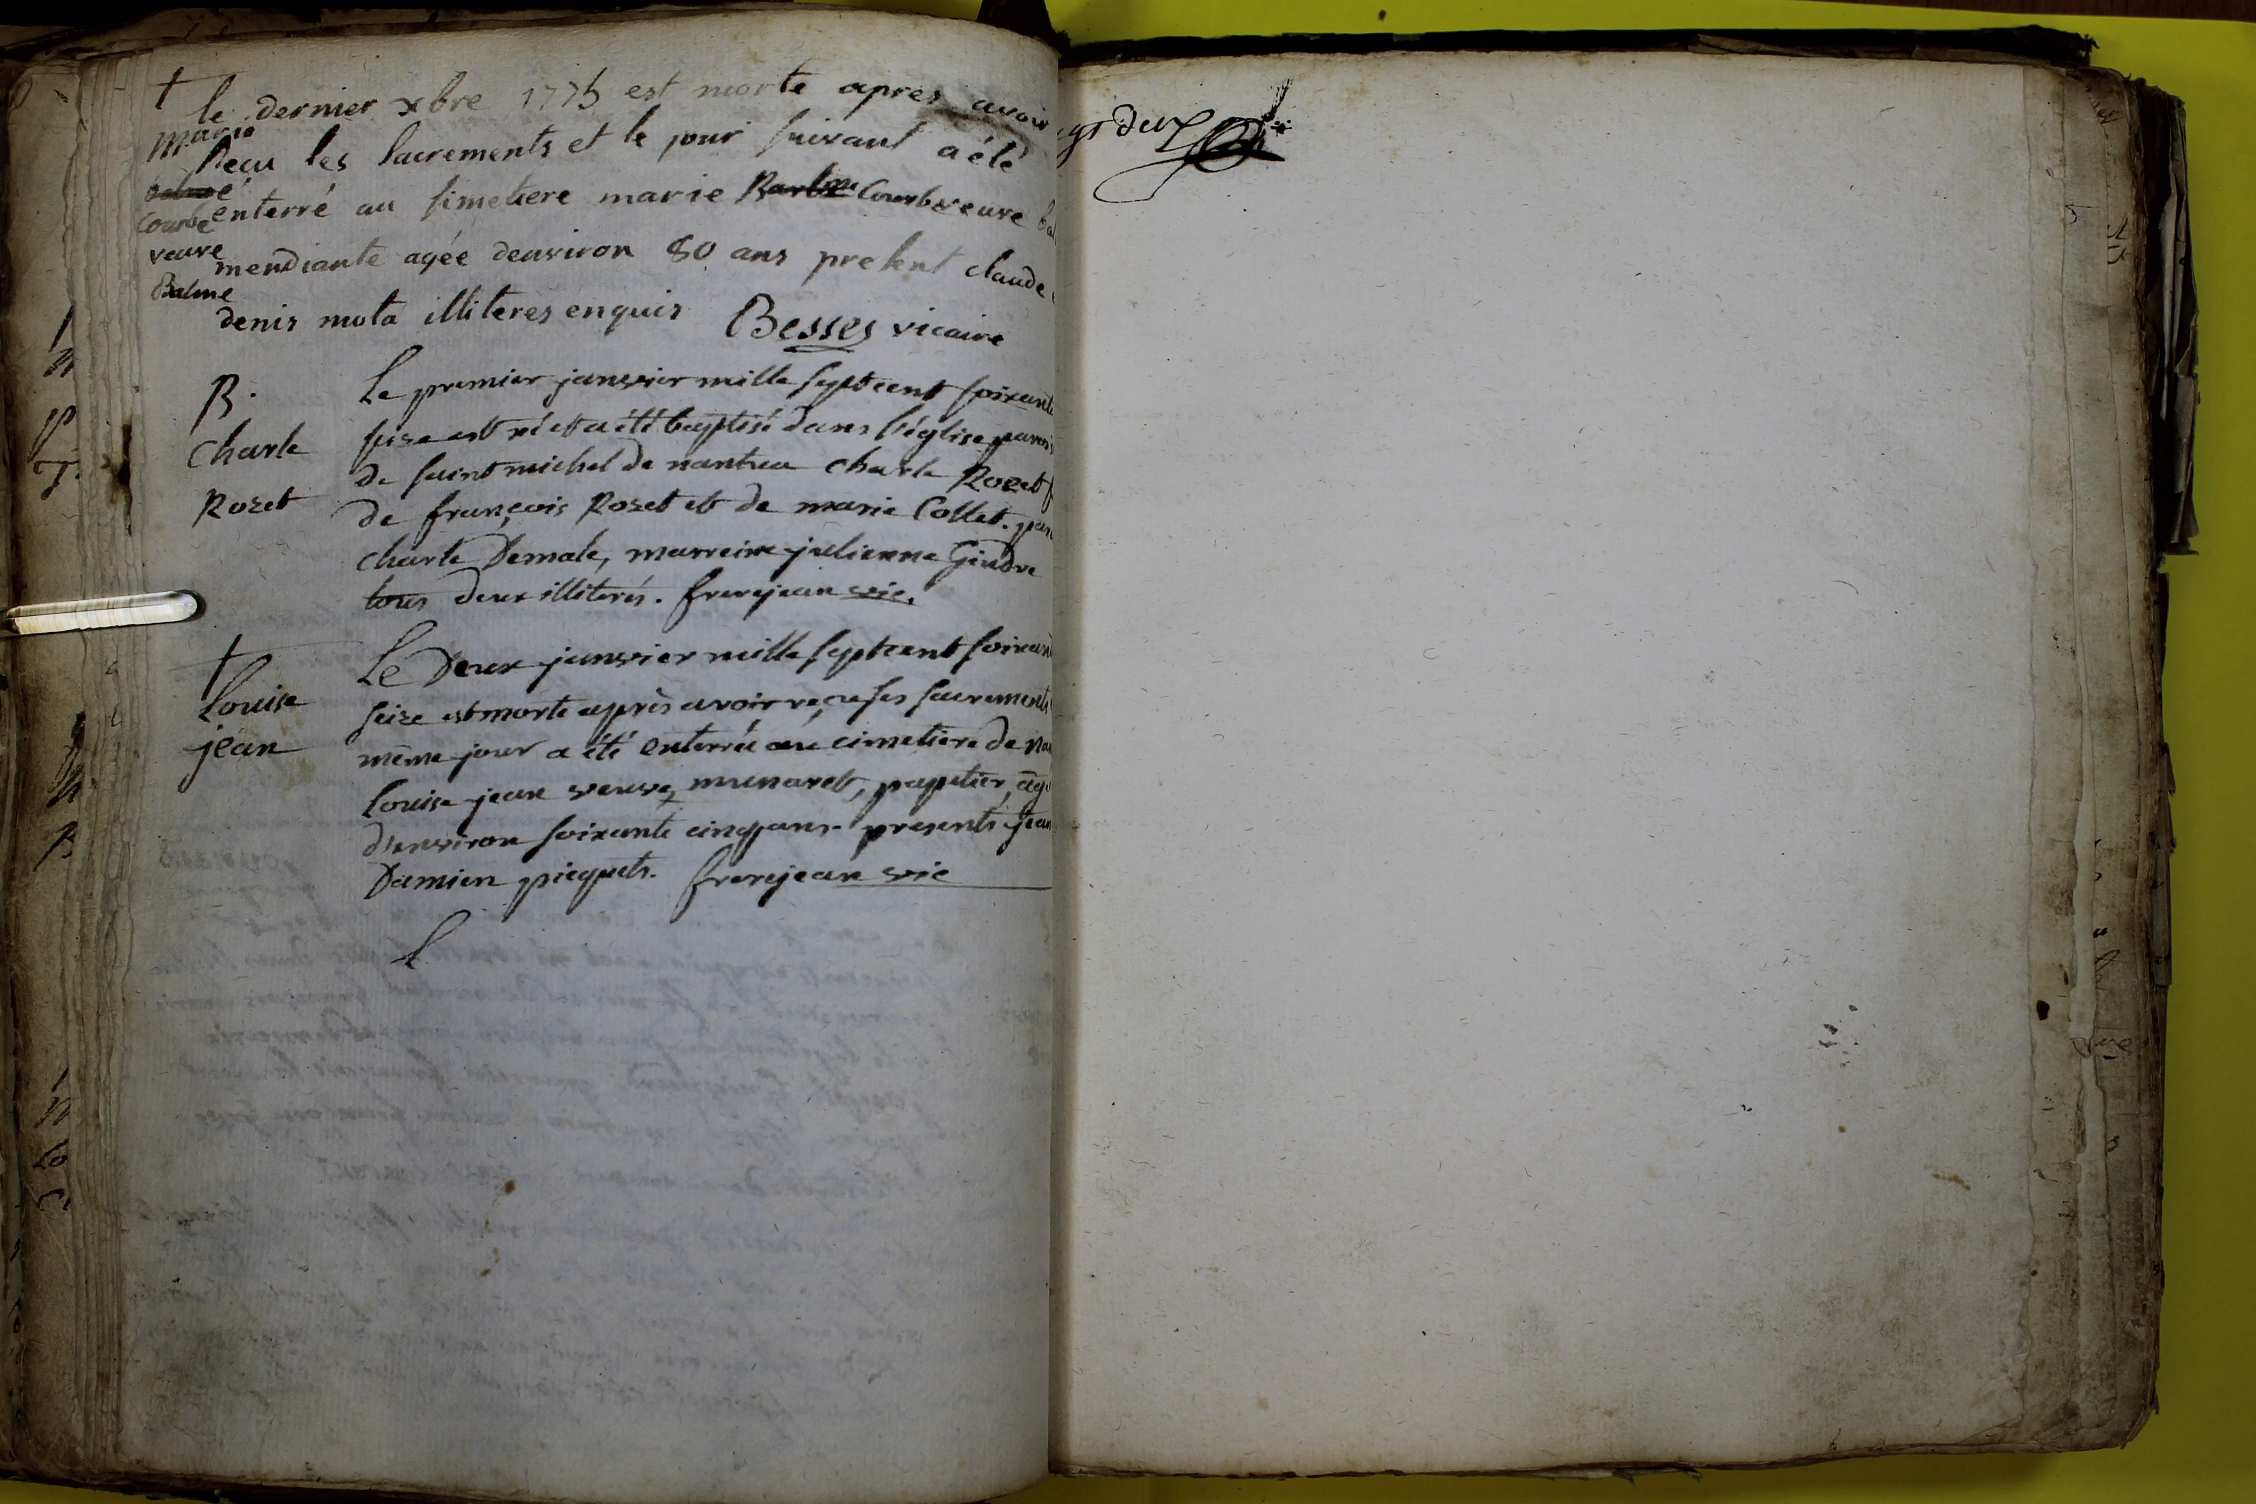 †
le dernier xbre 1775 est morte apres avoir
Marie
Reçu les sacrements et le jour suivant a été
Courbe
enterré au simetiere marie Courbe veuve
veuve
mendiante agée denviron 80 ans present claude
Balme
denis mota illiteres enquis Besses vicaire
B.
Charle
Rozet
Le premier janvier mille sept cent soixante
seize est né et a été baptisé dans l'église
de saint michel de nantua charle Rozet
de françois Rozet et de marie Collet.
charle Demale, marreine julienne Gindre
tous deux illiterés. frerejean vic.
†
Louise
jean
Le Deux janvier mille sept cent
seize est morte après avoir reçu ses sacrements
même jour a été enterrée au cimetiere de
Louise jean veuve munaret, papetier,
d'environ soixante cinq ans. presents jean
Damien piequets. frerejean vic
L
deux